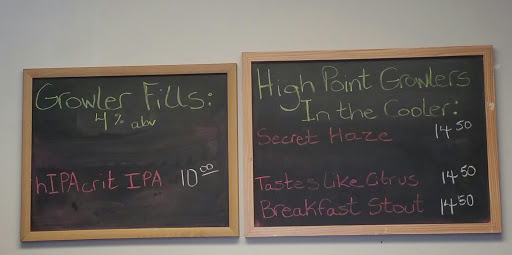 Growler Fills:
4% abv
hIPAcrit IPA 10.00
High Point Growlers
In the Cooler:
Secret Haze 14 50
Tastes Like Citrus 14 50
Breakfast Stout 14 50